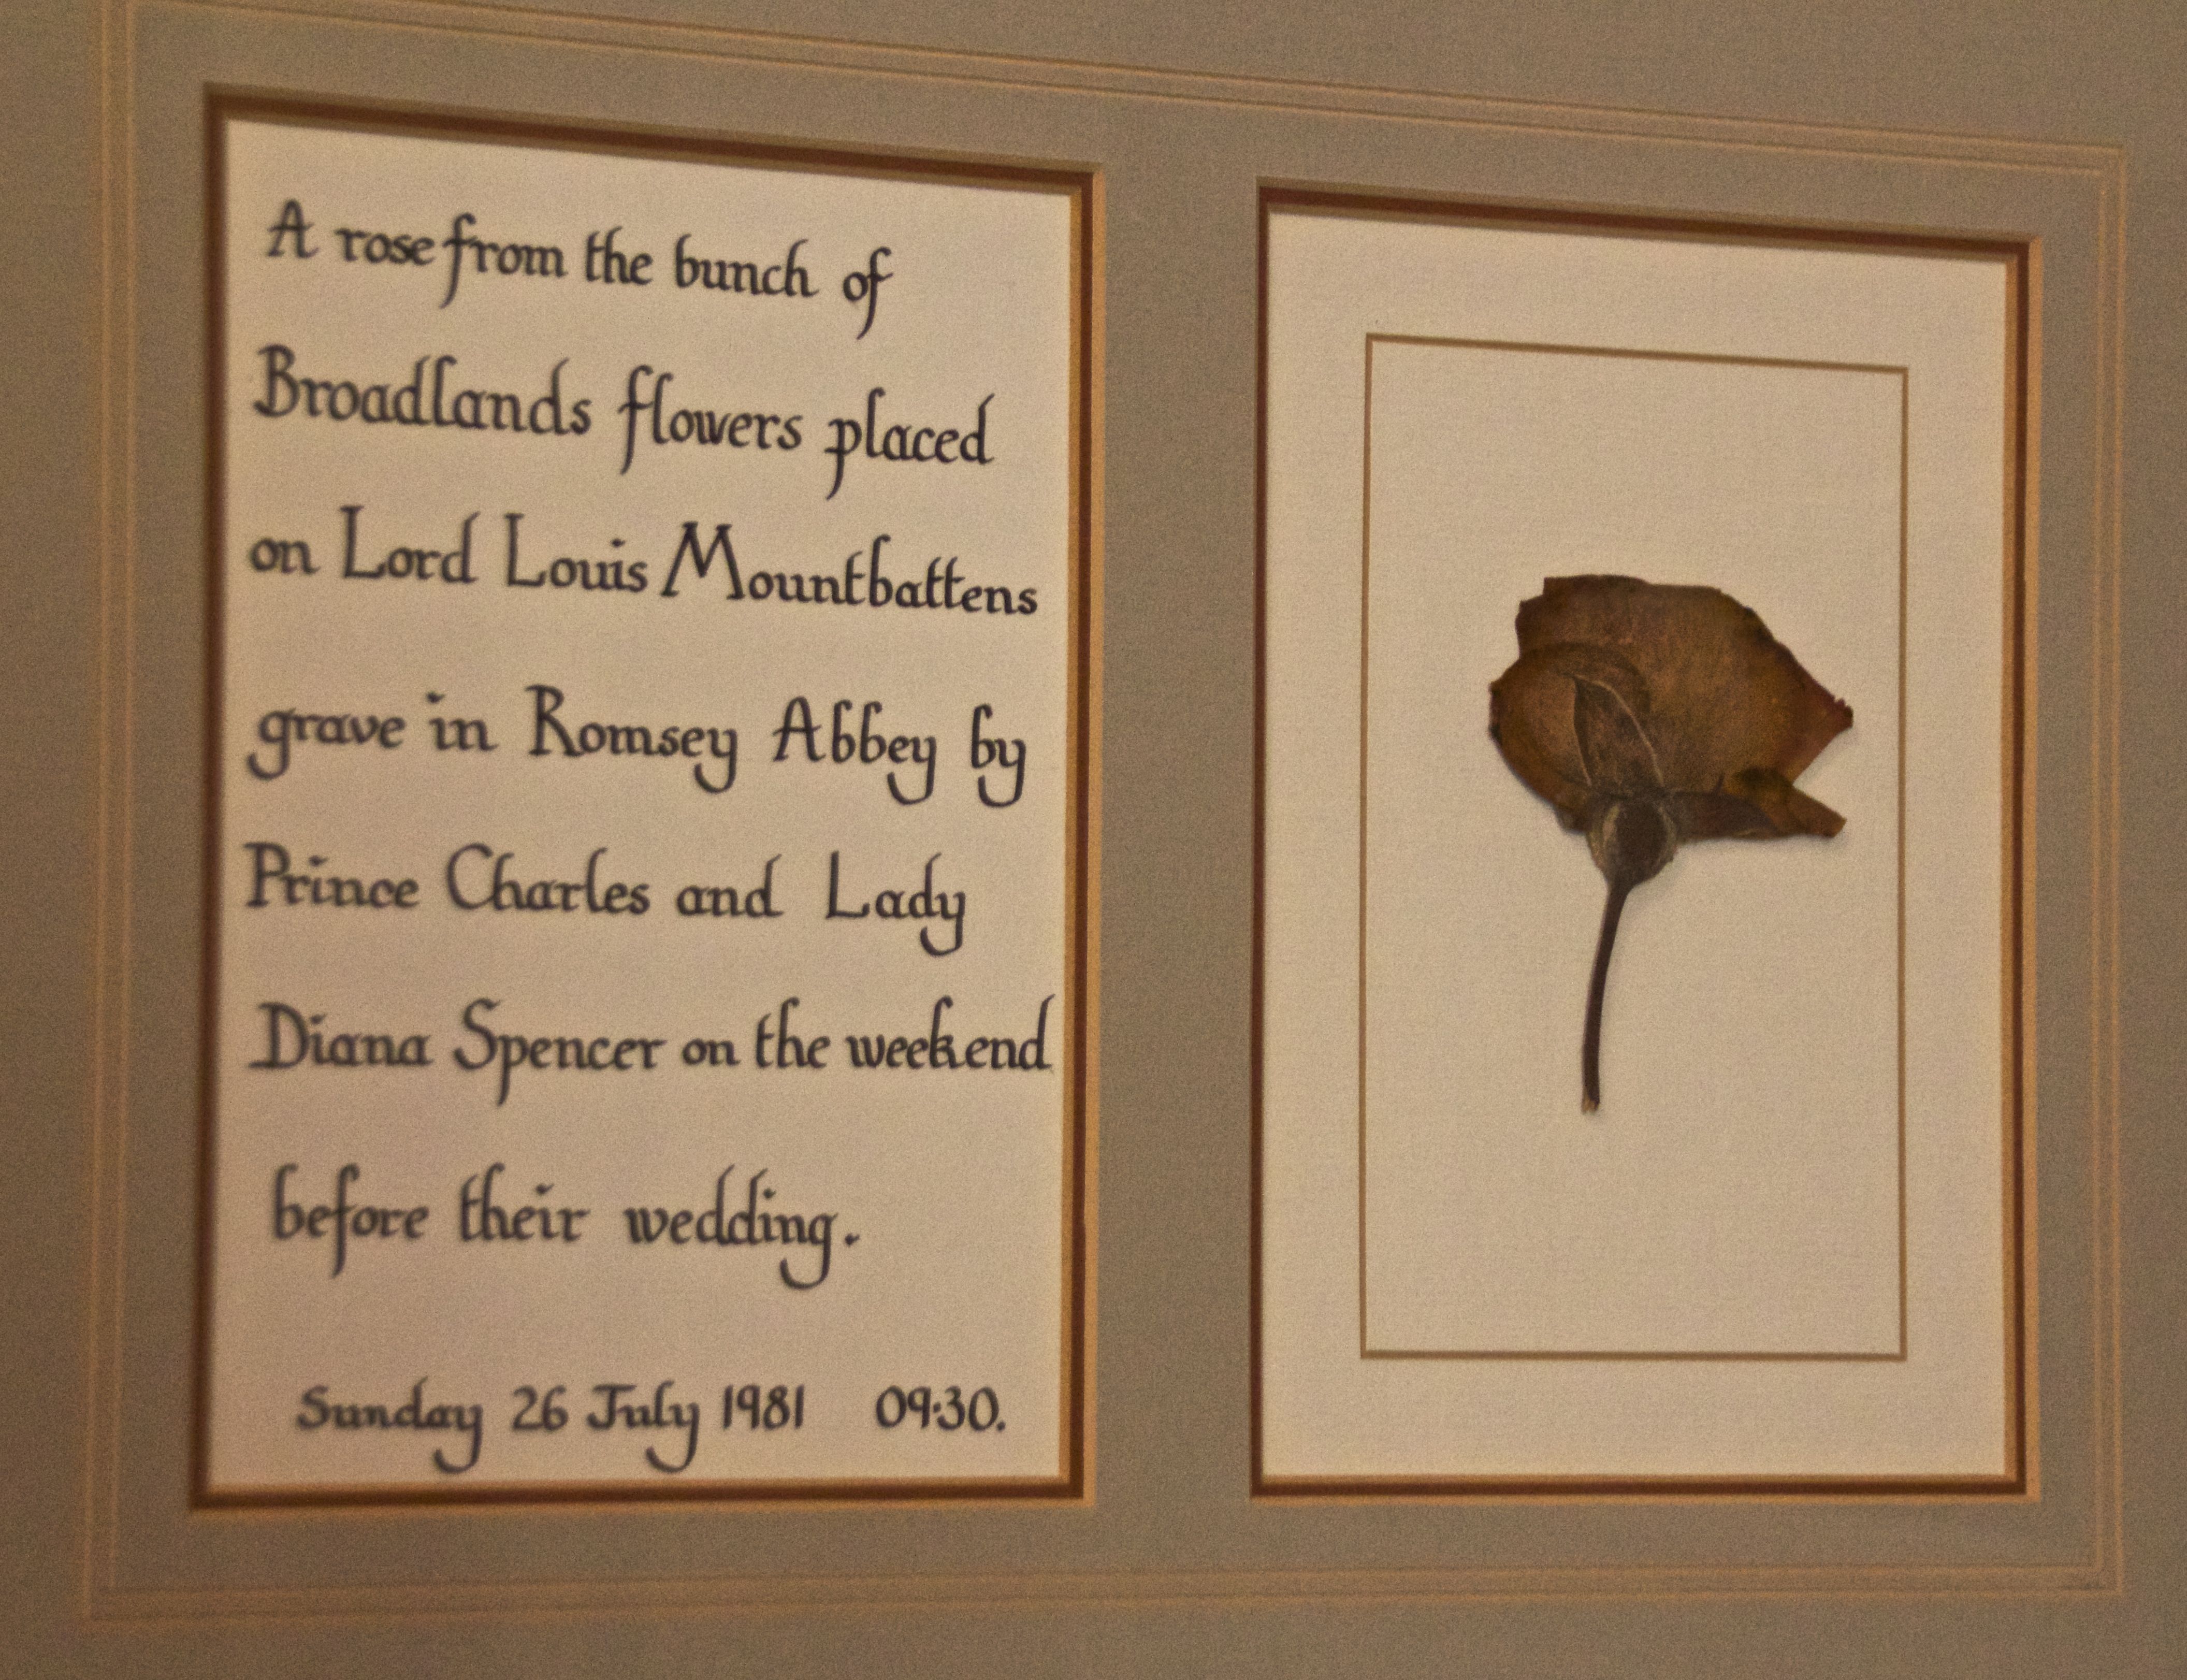 A rose from the bunch of
Broadlands flowers placed
on Lord Louis Mountbattens
grave in Romsey Abbey by
Prince Charles and Lady
Diana Spencer on the weekend
before their wedding.
Sunday 26 July 1981 09·30.